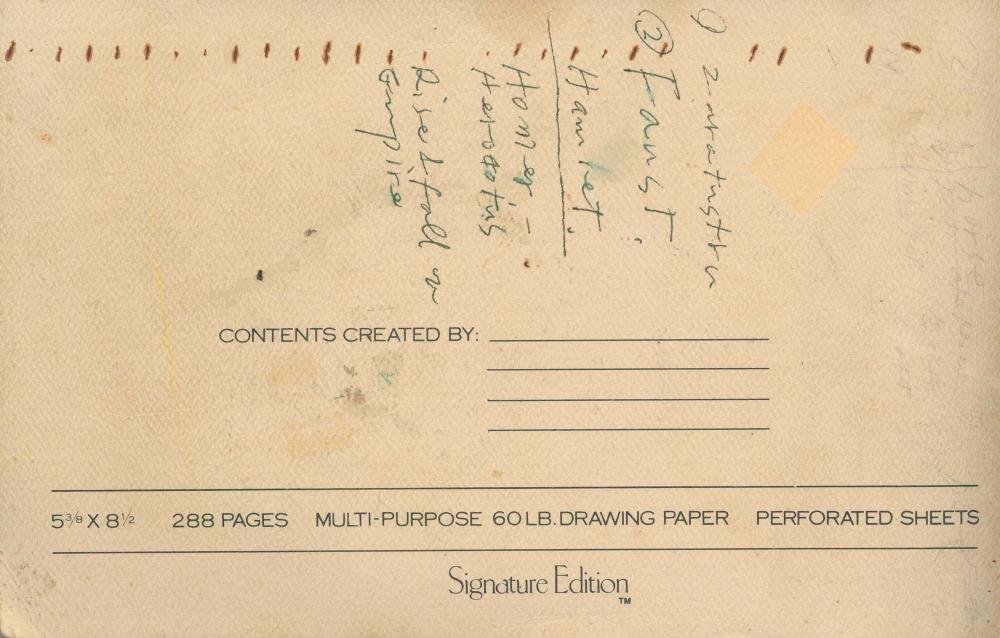 9 Zaratustra
② Faust.
Hamlet.
Homer -
Herodotus
Rise & fall
Empire
CONTENTS CREATED BY:
5 3/8 X 8 1/2 288 PAGES MULTI-PURPOSE 60 LB. DRAWING PAPER PERFORATED SHEETS
Signature Edition™